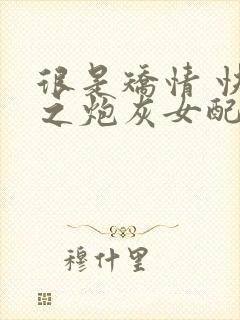 很是矫情 快
之炮灰女配
穆什里